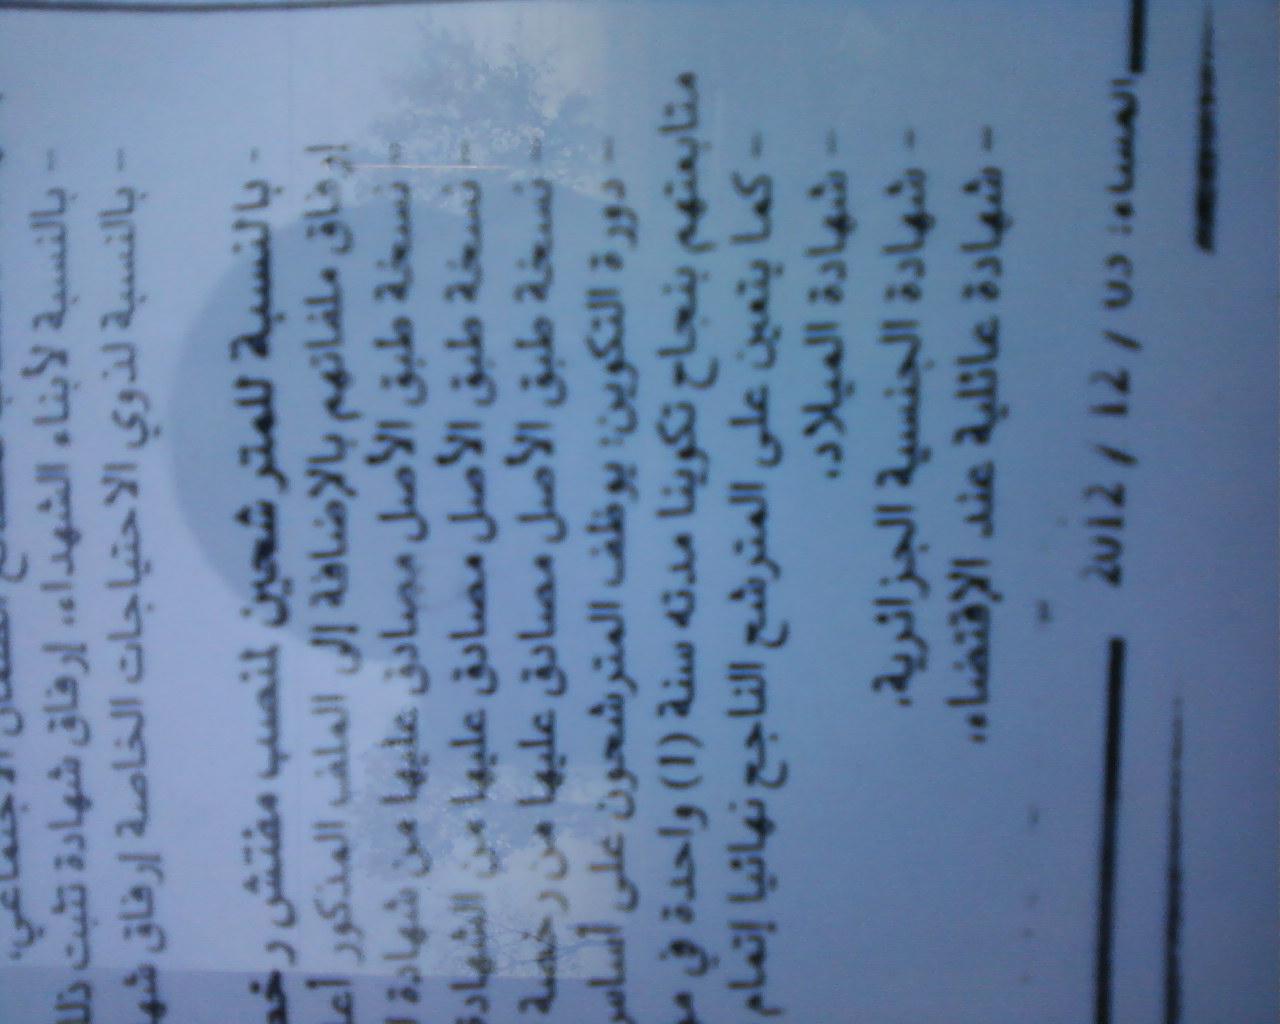 - بالنسبة لأبناء الشهداء، إرفاق شهادة تثبت ذلك
- بالنسبة لذوي الاحتياجات الخاصة إرفاق
- بالنسبة للمترشحين لمنصب مفتش
إرفاق ملفاتهم بالإضافة إلى الملف المذكور
- نسخة طبق الأصل مصادق عليها من شهادة
- نسخة طبق الأصل مصادق عليها من
- نسخة طبق الأصل مصادق عليها من رخصة
- دورة التكوين: يوظف المترشحون على أساس
متابعتهم بنجاح تكوينا مدته سنة (1) واحدة في
- كما يتعين على المترشح الناجح نهائيا إتمام
- شهادة الميلاد.
- شهادة الجنسية الجزائرية.
- شهادة عائلية عند الإقتضاء.
المساء: 05 / 12 / 2012